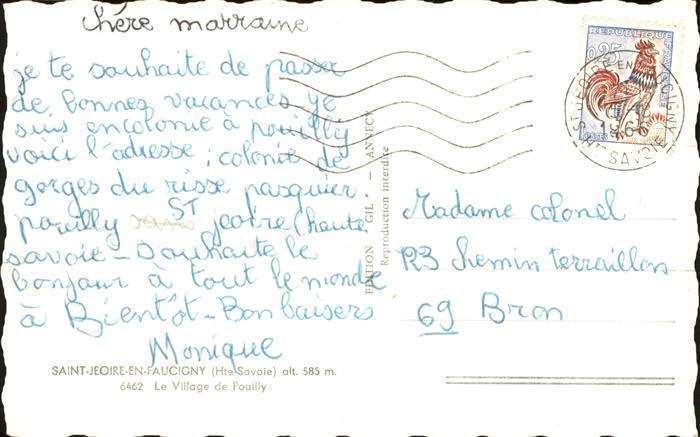 chère marraine
je te souhaite de passer
de bonnes vacances je
suis en colonie à pouilly
voici l'adresse, colonie de
gorges du risse pasquier.
pouilly ST jeoire (haute
savoie - souhaite le
bonjour à tout le monde
à Bientôt - Bon baisers
Monique
SAINT-JEOIRE-EN-FAUCIGNY (Hte-Savoie) alt. 585 m.
6462 Le Village de Pouilly
EDITION GIL - ANNECY
Reproduction interdite
REPUBLIQUE FRANÇAISE
0,25
Hte SAVOIE
Madame colonel
123 chemin terraillon
69 Bron